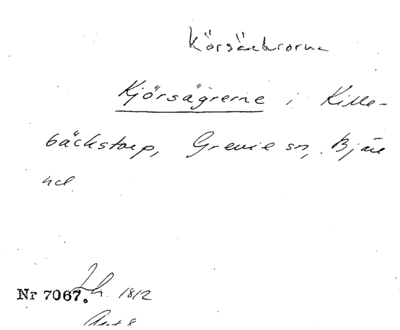 Körsåkrorna
Kjörsågrerne i Kille-
bäckstorp, Grevie sn, Bjäre
hd.
Lh. 1812
Nr 7067.
Akt 8